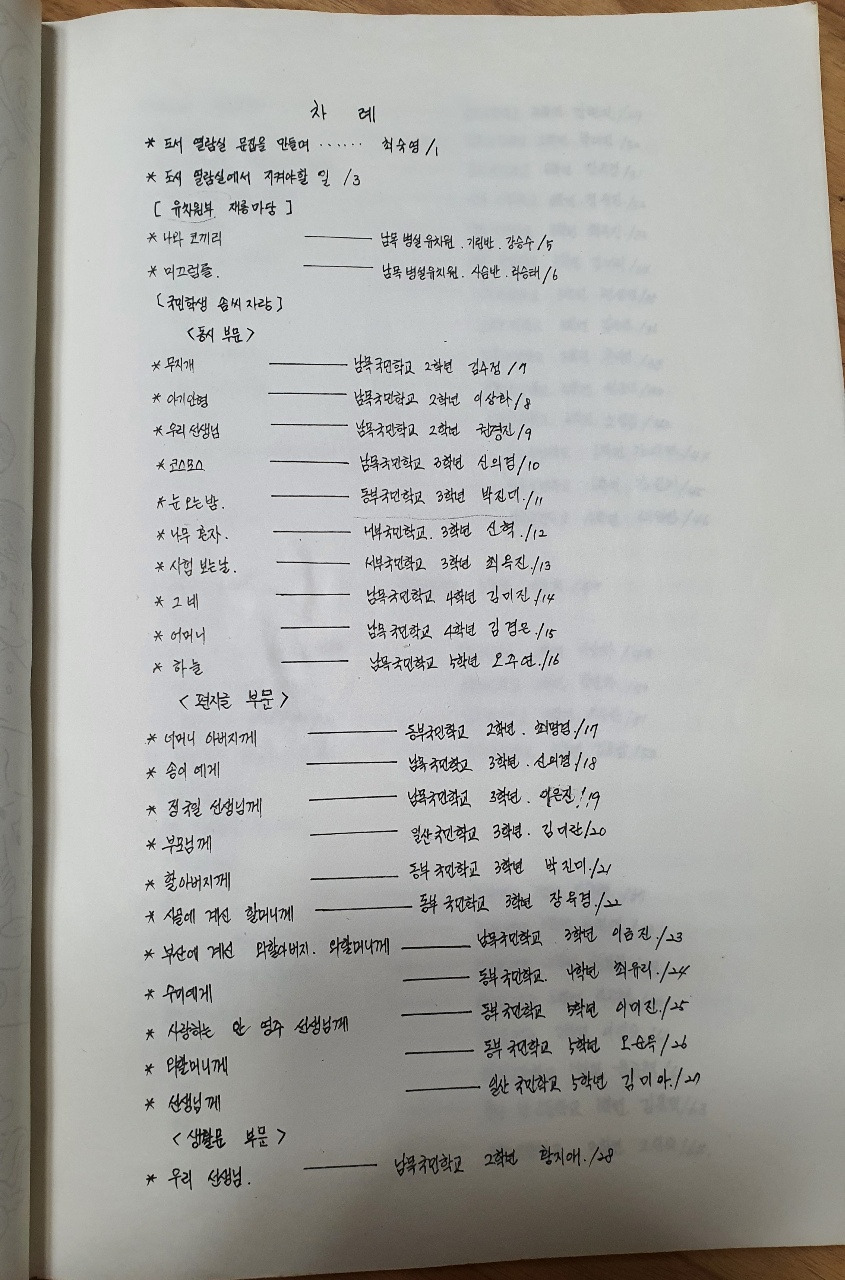 차 례
* 도서 열람실 문집을 만들며 ...... 최숙영 /1
* 도서 열람실에서 지켜야할 일 /3
[ 유치원부 재롱마당 ]
* 나와 코끼리 —— 남목 병설 유치원 . 기린반 . 강승수 /5
* 미끄럼틀. —— 남목 병설유치원 . 사슴반 . 곽승태 /6
[국민학생 솜씨 자랑]
<동시 부문>
* 무지개 —— 남목국민학교 2학년 김수정 /7
* 아기인형 —— 남목국민학교 2학년 이상하 /8
* 우리 선생님 —— 남목국민학교 2학년 권경진 /9
* 코스모스 —— 남목국민학교 3학년 신의경 /10
* 눈 오는 밤. —— 동부국민학교 3학년 박진미. /11
* 나무 혼자. —— 서부국민학교. 3학년 신혁. /12
* 시험 보는날. —— 서부국민학교 3학년 최윤진. /13
* 그네 —— 남목국민학교 4학년 김미진 /14
* 어머니 —— 남목국민학교 4학년 김경은. /15
* 하늘 —— 남목국민학교 5학년 오주연. /16
< 편지글 부문 >
* 어머니 아버지께 —— 동부국민학교 2학년. /17
* 송이 에게 —— 남목국민학교 3학년. 신의경. /18
* 정국일 선생님께 —— 남목국민학교 3학년. 이은진. /19
* 부모님께 —— 일산국민학교 3학년. 김미란 /20
* 할아버지께 —— 동부국민학교 3학년 박진미. /21
* 시골에 계신 할머니께 —— 동부 국민학교 3학년 장윤경. /22
* 부산에 계신 외할아버지. 외할머니께 —— 남목국민학교 3학년 진. /23
* 수미에게 —— 동부 국민학교. 4학년 최유리. /24
* 사랑하는 안 영주 선생님께 —— 동부 국민학교 5학년 이미진. /25
* 외할머니께 —— 동부 국민학교 5학년 오순옥 /26
* 선생님께 —— 일산 국민학교 5학년 김미아. /27
< 생활문 부문 >
* 우리 선생님. —— 남목국민학교 2학년 황지애. /28